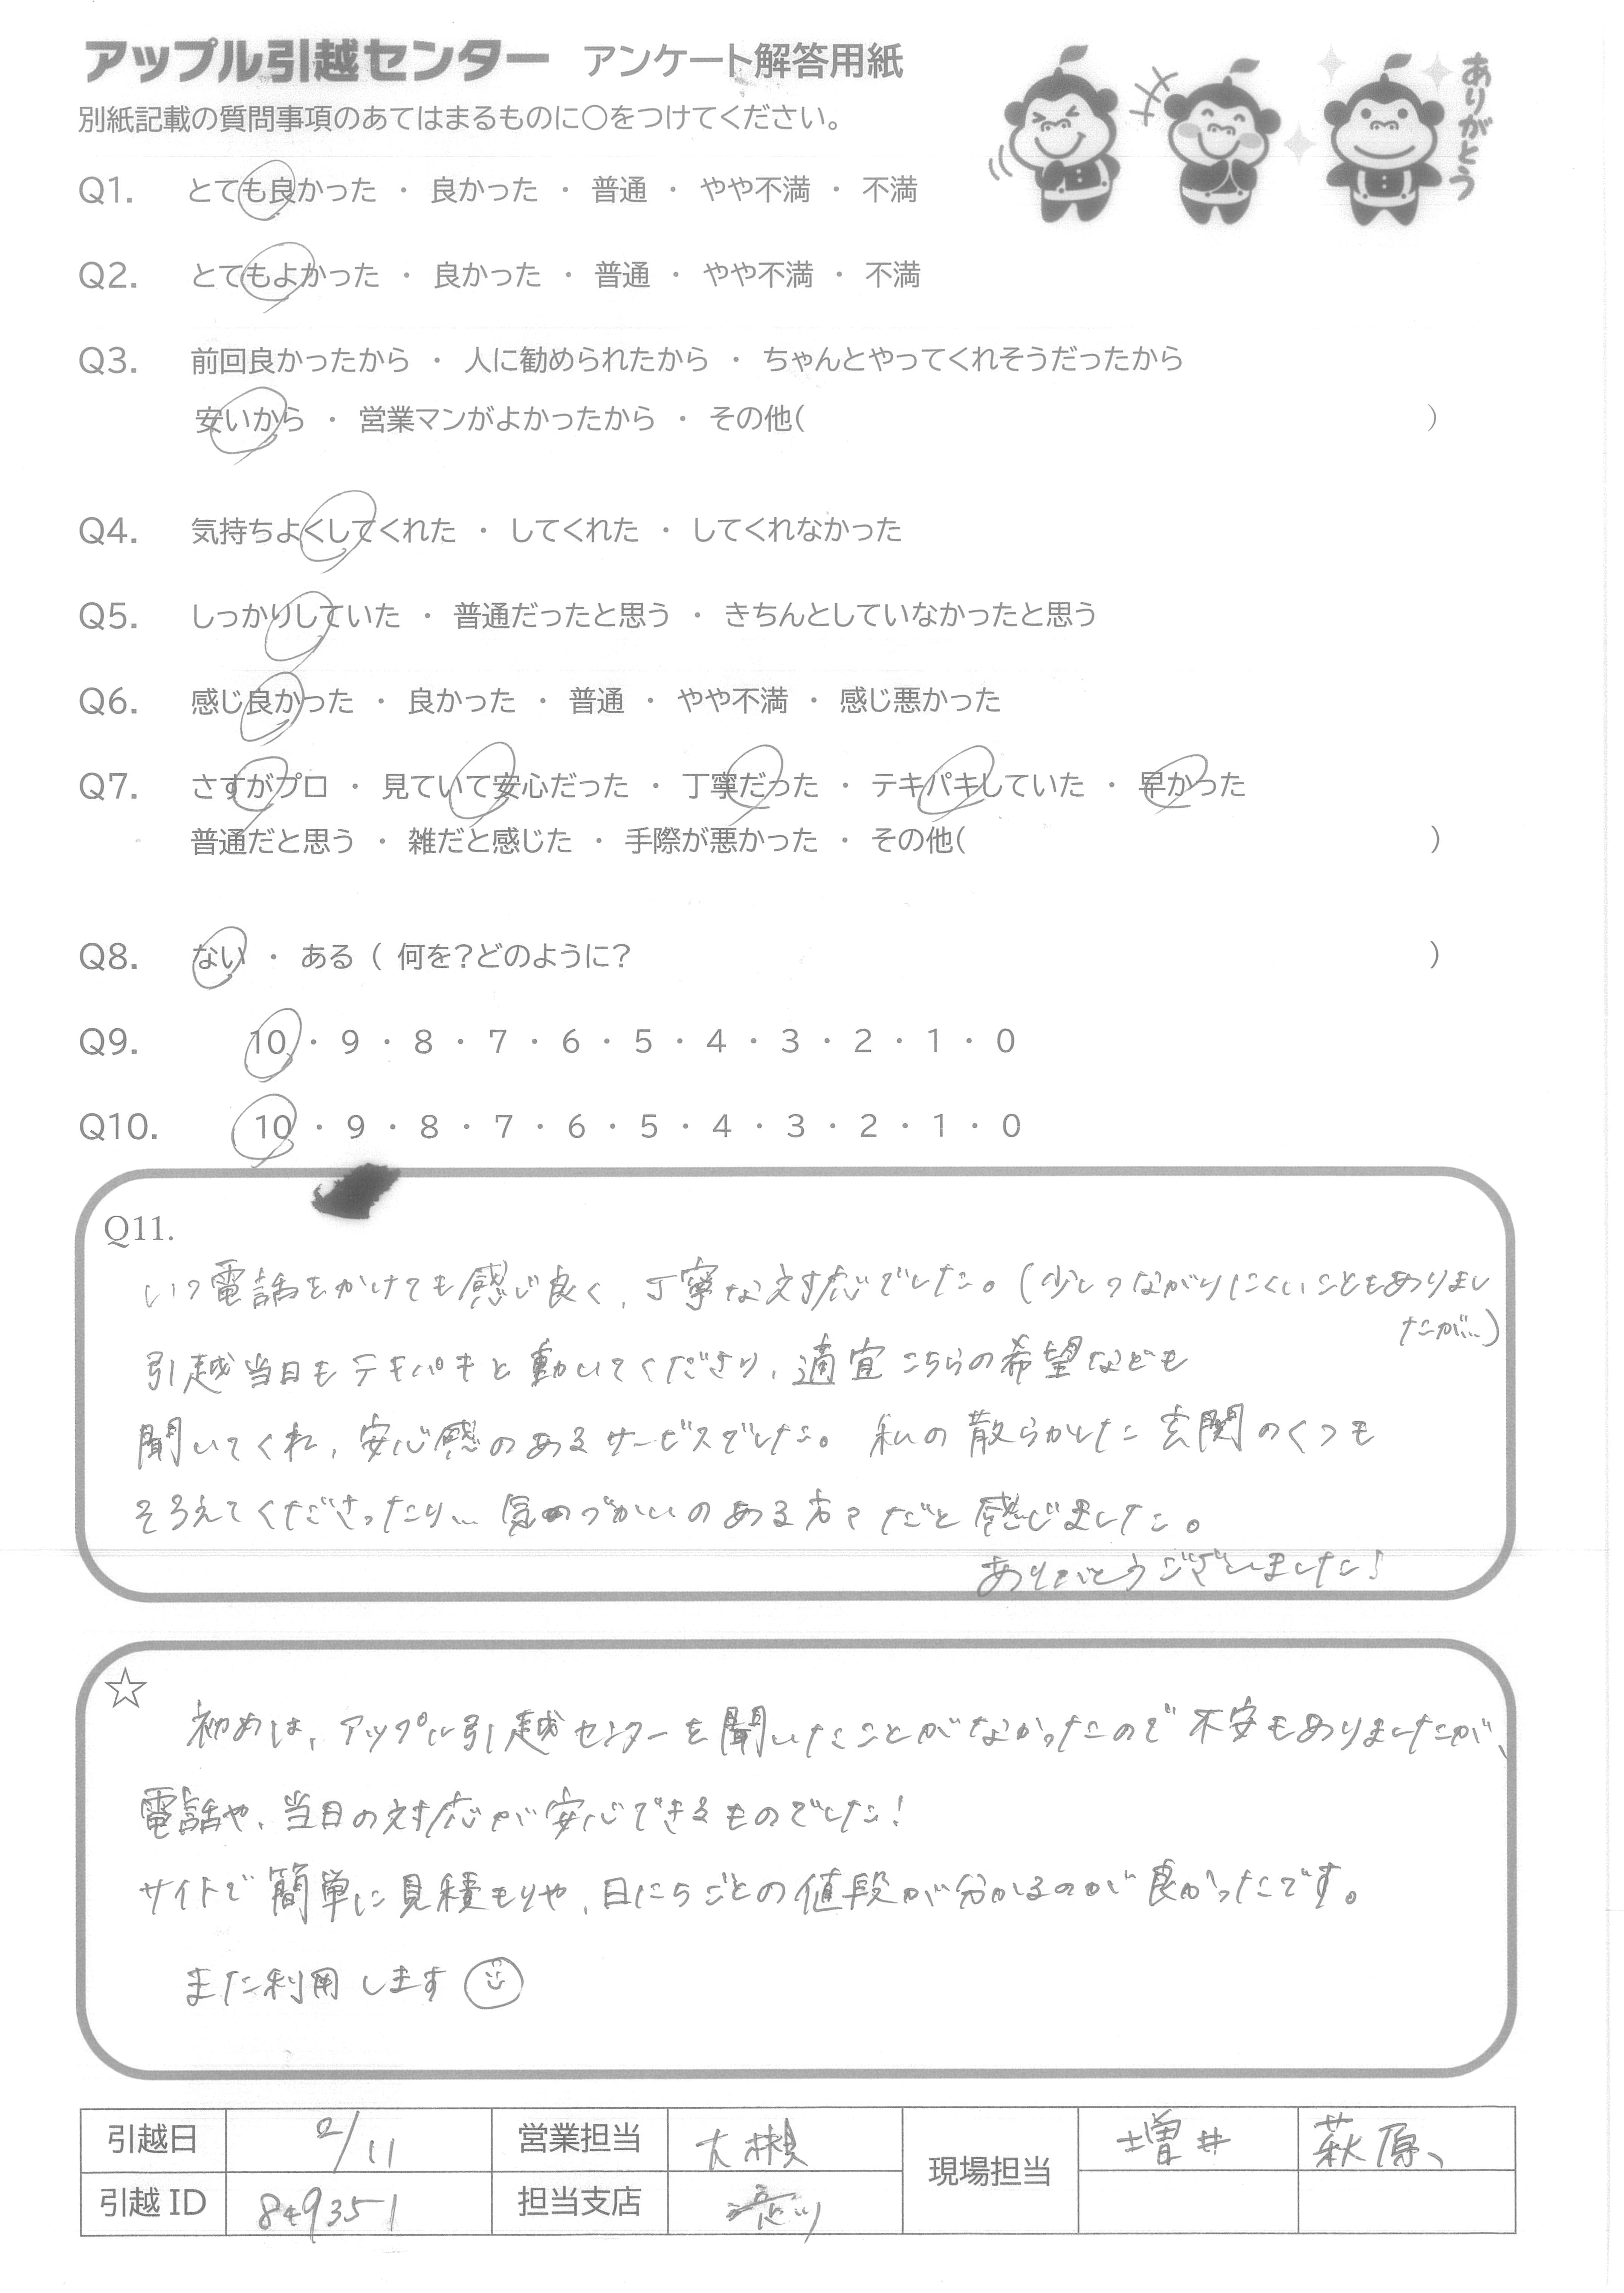 アップル引越センター アンケート解答用紙
別紙記載の質問事項のあてはまるものに○をつけてください。
ありがとう
Q1. とても良かった ・ 良かった ・ 普通 ・ やや不満 ・ 不満
Q2. とてもよかった ・ 良かった ・ 普通 ・ やや不満 ・ 不満
Q3. 前回良かったから ・ 人に勧められたから ・ ちゃんとやってくれそうだったから
安いから ・ 営業マンがよかったから ・ その他( )
Q4. 気持ちよくしてくれた ・ してくれた ・ してくれなかった
Q5. しっかりしていた ・ 普通だったと思う ・ きちんとしていなかったと思う
Q6. 感じ良かった ・ 良かった ・ 普通 ・ やや不満 ・ 感じ悪かった
Q7. さすがプロ ・ 見ていて安心だった ・ 丁寧だった ・ テキパキしていた ・ 早かった
普通だと思う ・ 雑だと感じた ・ 手際が悪かった ・ その他( )
Q8. ない ・ ある ( 何を?どのように? )
Q9. 10 ・ 9 ・ 8 ・ 7 ・ 6 ・ 5 ・ 4 ・ 3 ・ 2 ・ 1 ・ 0
Q10. 10 ・ 9 ・ 8 ・ 7 ・ 6 ・ 5 ・ 4 ・ 3 ・ 2 ・ 1 ・ 0
Q11.
いつ電話をかけても感じ良く、丁寧な対応でした。(少しつながりにくいこともありまし
たが…)
引越当日もテキパキと動いてくださり、適宜こちらの希望なども
聞いてくれ、安心感のあるサービスでした。私の散らかした玄関のくつも
そろえてくださったり… 気づかいのある方々だと感じました。
ありがとうございました!
☆
初めは、アップル引越センターを聞いたことがなかったので不安もありましたが、
電話や、当日の対応が安心できるものでした!
サイトで簡単に見積もりや、日にちごとの値段が分かるのが良かったです。
また利用します
引越日 2/11 営業担当 大槻 現場担当 増井 萩原
引越ID 849351 担当支店